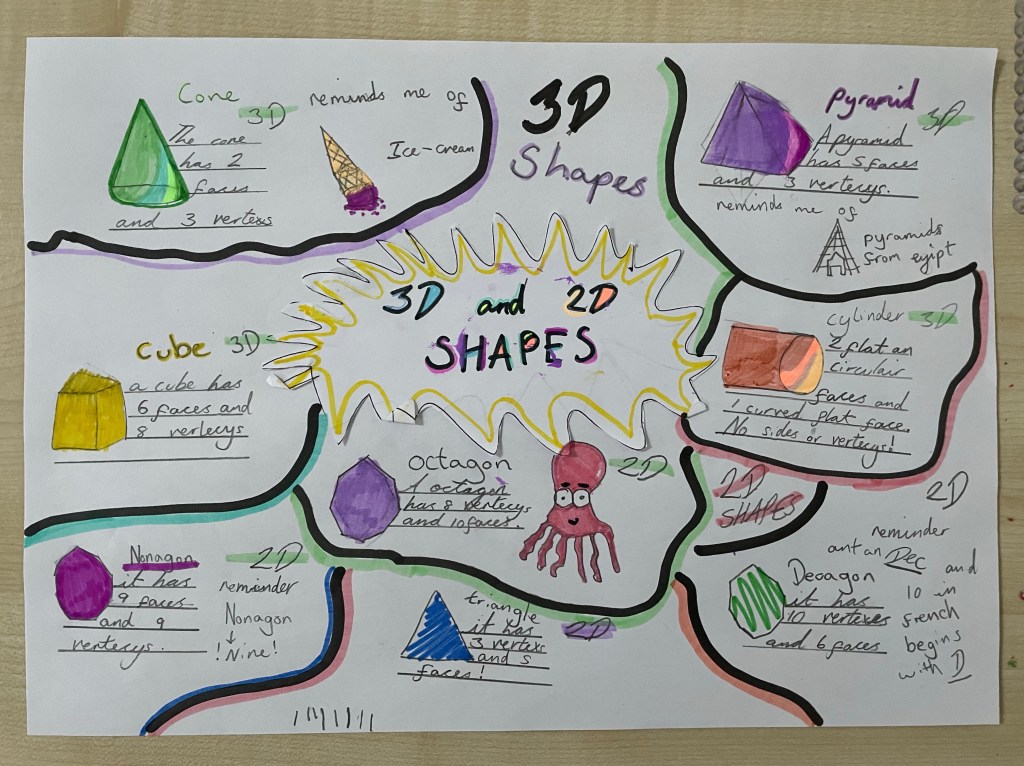 3D
Shapes
3D and 2D
SHAPES
Cone
3D
The cone
has 2
faces
and 3 vertexs
reminds me of
Ice-cream
Pyramid
3D
A pyramid
has 5 faces
and 3 vertecys.
reminds me of
pyramids
from eyipt
Cube 3D
a cube has
6 faces and
8 vertecys
cylinder 3D
2 flat an
circulair
faces and
1 curved flat face.
No sides or vertecys!
octagon
2D
1 octagon
has 8 vertecys
and 10 faces.
2D
SHAPES
Nonagon
2D
it has
9 faces
and 9
vertecys.
remeinder
Nonagon
↓
! Nine!
triangle
2D
it has
3 vertexs
and 5
faces!
2D
Decagon
it has
10 vertexes
and 6 faces
reminder
ant an Dec and
10 in
french
begins
with D